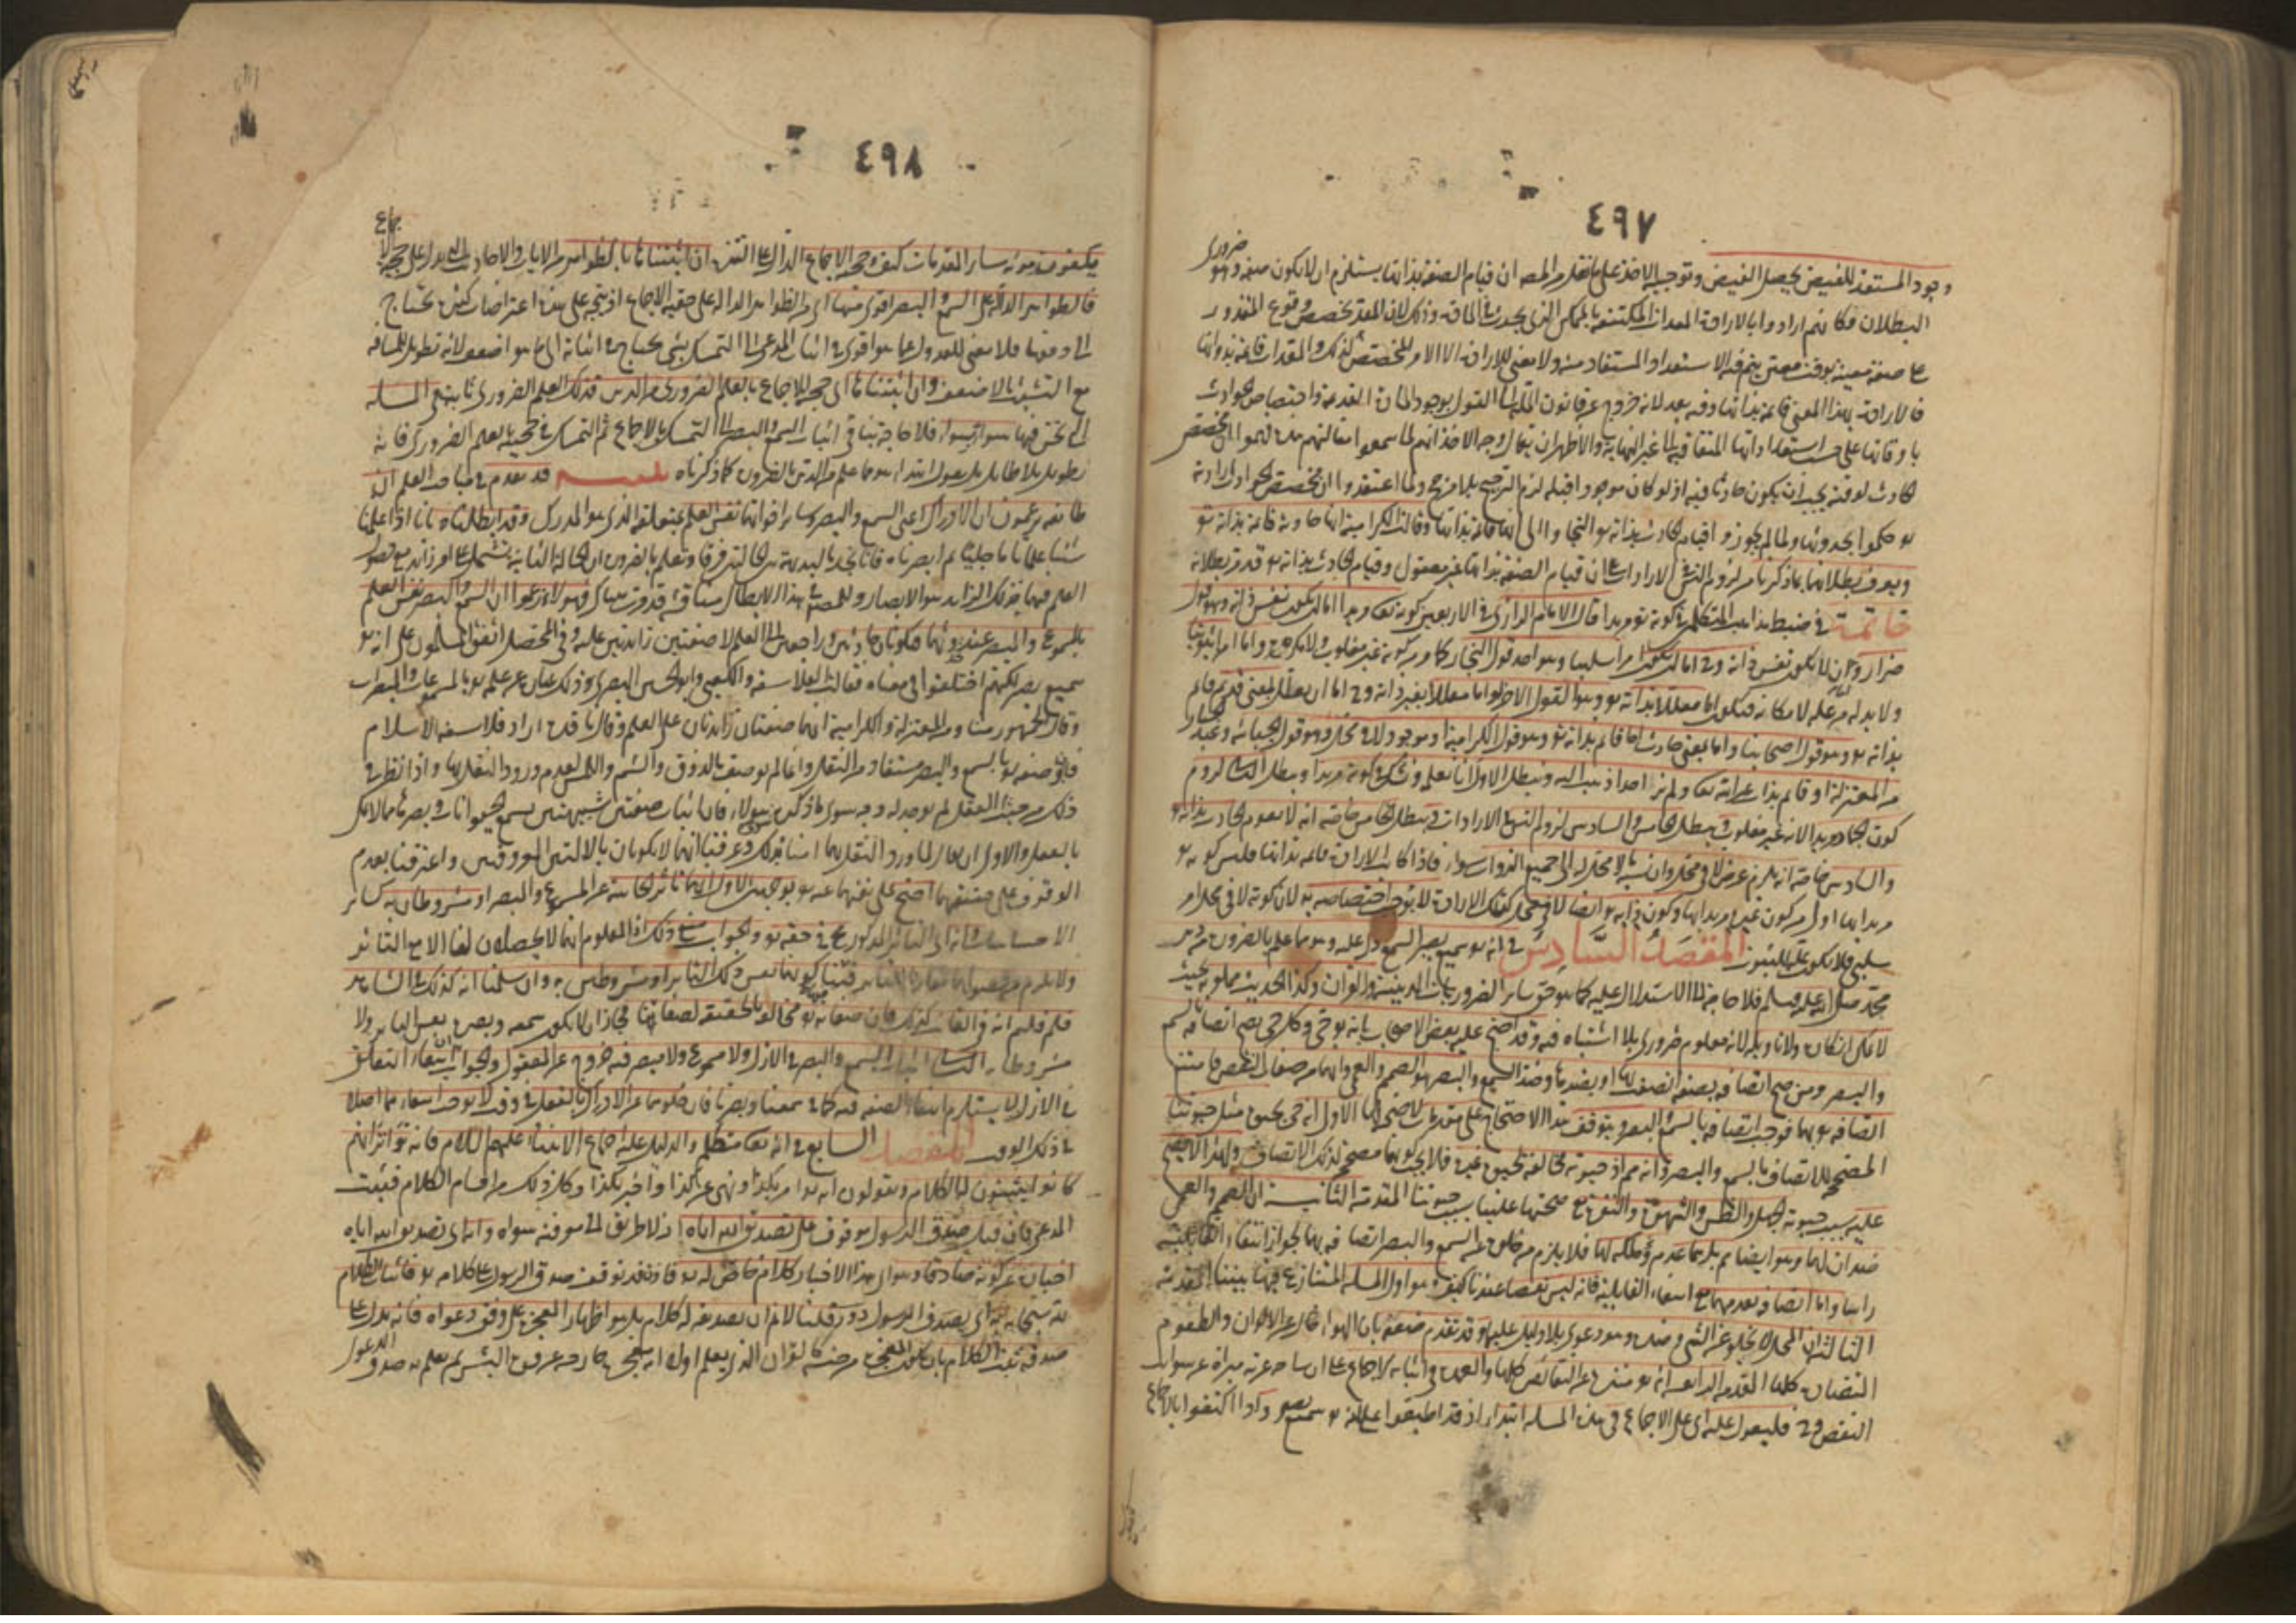 ٤٩٧
وجود المستعد للفيض يحصل الفيض وتوجيه الاخذ على ما نقله المصنف ان قيام الصفة بذاتها يستلزم ان لا يكون صفة وهو ضروري
البطلان فكانهم ارادوا بالارادة المعدات المكتنفة بالممكن الذي يحدث في المادة وذلك لان المعد يخصص وقوع المقدور
على صفة معينة بوقت معين يتم فيه الاستعداد المستفاد منه ولا معنى للارادة الا الامر المخصص كذلك والمعدات قائمة بذواتها
فالارادة بهذا المعنى قائمة بذاتها وفيه بعد لانه خروج عن قانون الملة الى القول بوجود المادة القديمة واختصاص الحوادث
باوقاتها على حسب استعداداتها المتعاقبة الى غير النهاية والاظهر ان يقال وجه الاخذ انهم لما سمعوا مقالتهم هذه توهموا ان مخصص
الحادث لوقته يجب ان يكون حادثا فيه اذ لو كان موجودا قبله لزم الترجيح بلا مرجح ولما اعتقدوا ان مخصص الحوادث ارادته
تع حكموا بحدوثها ولما لم يجوزوا قيام الحادث بذاته تع التجاوا الى انها قائمة بذاتها وقالت الكرامية انها حادثة قائمة بذاته تع
ويعرف بطلانها بما ذكرنا من لزوم التس في الارادات مع ان قيام الصفة بذاتها غير معقول وقيام الحادث بذاته تع قد مر بطلانه
خاتمة في ضبط مذاهب المتكلمين في كونه تع مريدا قال الامام الرازي في الاربعين كونه تعالى مريدا اما ان يكون نفس ذاته وهو قول
ضرار واما ان لا يكون نفس ذاته وح اما ان يكون امرا سلبيا وهو احد قولي النجار كما مر كونه غير مغلوب ولا مكره واما امرا ثبوتيا
ولا بد له من علة لامكانه فتكون اما معللا بذاته تع وهو القول الاخر له واما معللا بغير ذاته وح اما ان يعلل بمعنى قديم قائم
بذاته تع وهو قول اصحابنا واما بمعنى حادث اما قائم بذاته تع وهو قول الكرامية او موجود لا في محل وهو قول الجبائية وعبد الجبار
من المعتزلة او قائم بذات غير ذاته تعالى ولم نر احدا ذهب اليه ويبطل الاول انا نعلمه ونشك في كونه مريدا ويبطل الثاني لزوم
كون الجماد مريدا لانه غير مغلوب ويبطل الخامس والسادس لزوم التس في الارادات ويبطل الخامس خاصة انه لا يقوم الحادث بذاته تع
والسادس خاصة انه يلزم عرض لا في محل وان نسبة ما لا محل له الى جميع الذوات سواء فاذا كانت الارادة قائمة بذاتها فليس كونه تع
مريدا بها اولى من كون غيره مريدا بها وكون ذاته تع ايضا لا في محل كتلك الارادة لا يوجب اختصاصه به لان كونه لا في محل امر
سلبي فلا يكون علة للثبوت المقصد السادس في انه تع سميع بصير السمع دل عليه وهو مما علم بالضرورة من دين
محمد صلى الله عليه وسلم فلا حاجة الى الاستدلال عليه كما هو حق سائر الضروريات الدينية والقران وكذا الحديث مملو به بحيث
لا يمكن انكاره ولا تاويله لانه معلوم ضروري بلا اشتباه فيه وقد احتج عليه بعض الاصحاب بانه تع حي وكل حي يصح اتصافه بالسمع
والبصر ومن صح اتصافه بصفة اتصف بها او بضدها وضد السمع والبصر هو الصمم والعمى وانهما من صفات النقص فامتنع
اتصافه تع بهما فوجب اتصافه بالسمع والبصر ويتوقف هذا الاحتجاج على مقدمات لا صحة لها الاول انه حي بحيوة مثل حيوتنا
المصحح للاتصاف بالسمع والبصر وانه مم اذ حيوته مخالفة لحيوة غيره فلا يجب كونها مصححة لذلك الاتصاف ولهذا لا يصح
عليه بسبب حيوته الجهل والظن والشهوة والنفرة مع صحتها علينا بسبب حيوتنا المقدمة الثانية ان الصمم والعمى
ضدان لهما وهو ايضا مم بل هما عدم ملكة لهما فلا يلزم من خلوه عن السمع والبصر اتصافه بهما لجواز انتفاء القابلية
راسا واما اتصافه بعدمهما مع انتفاء القابلية فانه ليس نقصا عندنا كيف وهو اول المسئلة المتنازع فيها بيننا المقدمة
الثالث ان المحل لا يخلو عن الشيء وضده وهو دعوى بلا دليل عليها وقد تقدم ضعفه بان الهواء خال عن الالوان والطعوم
المتضادة كلها المقدمة الرابعة انه تع منزه عن النقائص كلها والعمدة في اثباته الاجماع على ان ساحة عزته مبراة عن شوائب
النقص وح فليعول عليه اي على الاجماع في هذه المسئلة ابتداء اذ قد اطبقوا على انه تع سميع بصير واذا اكتفوا بالاجماع
٤٩٨
يكفون مؤنة سائر المقدمات كيف وحجية الاجماع الدال على التنزه ان اثبتناها بالظواهر من الايات والاحاديث التي تدل على حجية الاجماع
فالظواهر الدالة على السمع والبصر اقوى منها اي من الظواهر الدالة على حقية الاجماع اذ يتجه على هذه اعتراضات كثيرة يحتاج
الى دفعها فلا معنى للعدول عما هو اقوى في اثبات المدعى الى التمسك بشيء يحتاج في اثباته الى ما هو اضعف لانه تطويل للمسافة
مع التشبث بالاضعف وان اثبتناها اي حجية الاجماع بالعلم الضروري من الدين فذلك العلم الضروري ثابت في المسئلة
التي نحن فيها سواء بسواء فلا حاجة بنا في اثبات السمع والبصر الى التمسك بالاجماع ثم التمسك في حجيته بالعلم الضروري فانه
تطويل بلا طائل بل يعول ابتداء هو مما علم من الدين بالضرورة كما ذكرناه تنبيه قد تقدم في مباحث العلم ان
طائفة يزعمون ان الادراك اعني السمع والبصر وسائر اخواتهما نفس العلم بمتعلقه الذي هو المدرك وقد ابطلناه بانا اذا علمنا
شيئا علما تاما جليا ثم ابصرناه فانا نجد بالبديهة بين الحالتين فرقا ونعلم بالضرورة ان الحالة الثانية تشتمل على امر زائد مع حصول
العلم فيهما فذلك الزائد هو الابصار وللمصنف في هذا الابطال مناقشة قد مرت هناك فهؤلاء زعموا ان السمع والبصر نفس العلم
بالمسموع والمبصر عند حدوثهما فيكونان حادثين وراجعين الى العلم لا صفتين زائدتين عليه وفي المحصل اتفق المسلمون على انه تع
سميع بصير لكنهم اختلفوا في معناه فقالت الفلاسفة والكعبي وابو الحسين البصري وذلك عبارة عن علمه تع بالمسموعات والمبصرات
وقال الجمهور منا ومن المعتزلة والكرامية انهما صفتان زائدتان على العلم وقال ناقده اراد فلاسفة الاسلام
فان وصفه تع بالسمع والبصر مستفاد من النقل وانما لم يوصف بالذوق والشم واللمس لعدم ورود النقل بها واذا نظر في
ذلك من حيث العقل لم يوجد له وجه سوى ما ذكره هؤلاء فان اثبات صفتين شبيهتين بسمع الحيوانات وبصرها مما لا يمكن
بالعقل والاولى ان يقال لما ورد النقل بهما امنا بذلك وعرفنا انهما لا يكونان بالالتين المعروفتين واعترفنا بعدم
الوقوف على حقيقتهما احتج على نفيهما عنه تع بوجهين الاول انهما تاثر الحاسة عن المسموع والمبصر او مشروطان به كسائر
الاحساسات وانه اي التاثر المذكور مح في حقه تع والجواب منع ذلك اذ المعلوم انهما لا يحصلان لنا الا مع التاثر
ولا يلزم من حصولهما مقارنا للتاثر فينا كونهما نفس ذلك التاثر او مشروطين به وان سلمنا انه كذلك في الشاهد
فلم قلتم انه في الغائب كذلك فان صفاته تع مخالفة بالحقيقة لصفاتنا فجاز ان لا يكون سمعه وبصره نفس التاثر ولا
مشروطا به الثاني اثبات السمع والبصر في الازل ولا مسموع ولا مبصر فيه خروج عن المعقول والجواب ان انتفاء التعلق
في الازل لا يستلزم انتفاء الصفة فيه كما في سمعنا وبصرنا فان خلوهما عن الادراك بالفعل في وقت لا يوجب انتفاءهما اصلا
في ذلك الوقت المقصد السابع في انه تعالى متكلم والدليل عليه اجماع الانبياء عليهم السلام فانه تواتر انهم
كانوا يثبتون له الكلام ويقولون انه تع امر بكذا ونهى عن كذا واخبر بكذا وكل ذلك من اقسام الكلام فثبت
المدعى فان قيل صدق الرسول موقوف على تصديق الله اياه اذ لا طريق الى معرفته سواه وانه اي تصديق الله اياه
اخباره عن كونه صادقا وهو اي هذا الاخبار كلام خاص له تع فاذن قد توقف صدق الرسول على كلامه تع فاثبات الكلام
لله سبحانه به اي بصدق الرسول دور قلنا لا نم ان تصديقه له كلام بل هو اظهار المعجزة على وفق دعواه فانه يدل على
صدقه ثبت الكلام بان يكون المعجزة من جنسه كالقران الذي يعلم اولا انه معجز خارج عن قوة البشر ثم يعلم به صدق الدعوى